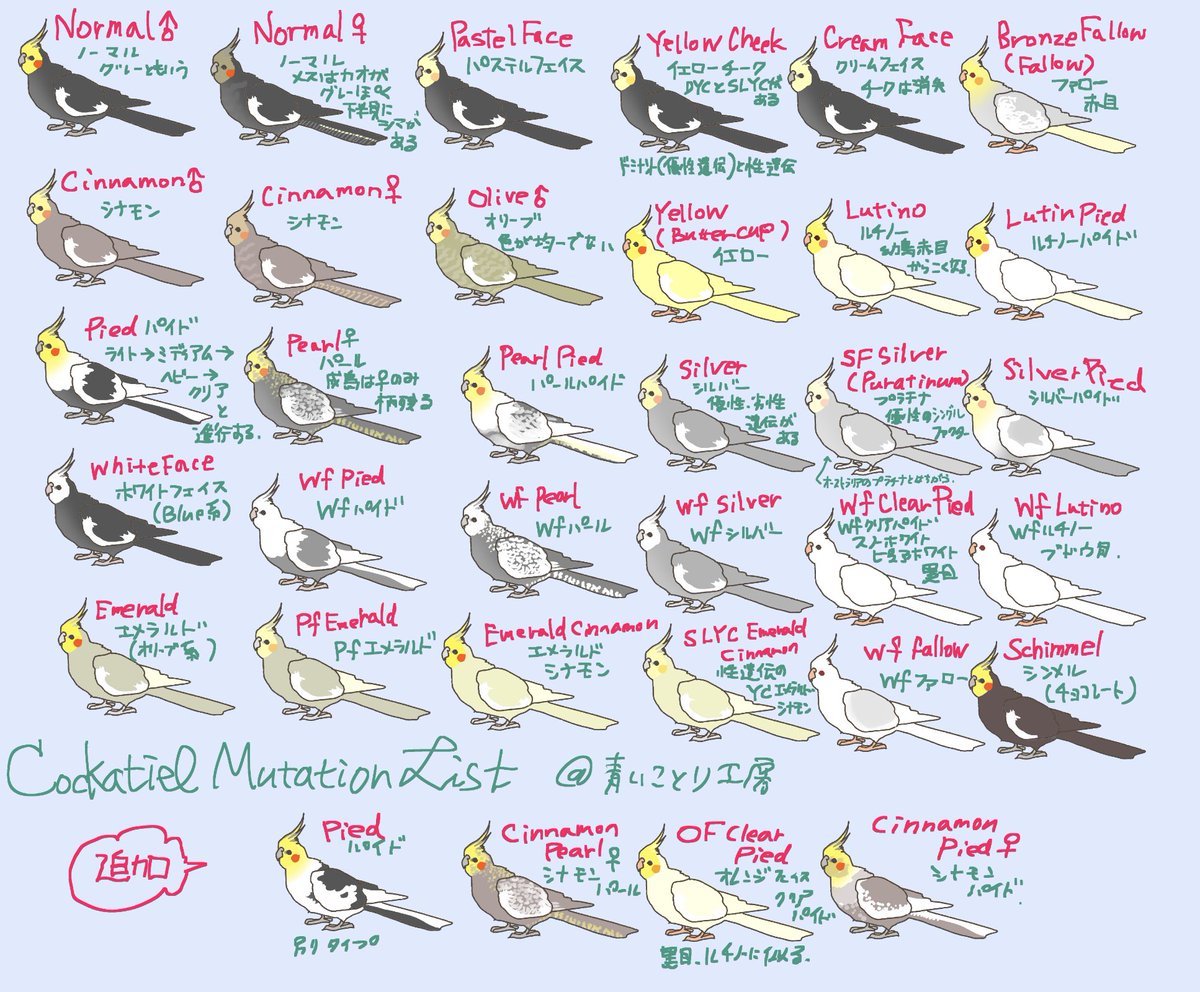 Normal♂
ノーマル
グレーともいう
Normal♀
ノーマル
メスはカオが
グレーぽく
下半身に
シマが
ある
Pastel Face
パステルフェイス
Yellow Cheek
イエローチーク
DYCとSLYCが
ある
ドミナント(優性遺伝)と性遺伝
Cream Face
クリームフェイス
チークは消失
Bronze Fallow
(Fallow)
ファロー
赤目
Cinnamon♂
シナモン
Cinnamon♀
シナモン
Olive♂
オリーブ
色が均一でない
Yellow
(Buttercup)
イエロー
Lutino
ルチノー
幼鳥赤目
からこくなる
Lutin Pied
ルチノーパイド
Pied パイド
ライト→ミディアム→
ヘビー→
クリア
と
進行する.
Pearl♀
パール
成鳥は♀のみ
柄残る
Pearl Pied
パールパイド
Silver
シルバー
優性・劣性
遺伝が
ある
SF Silver
(Puratinum)
プラチナ
優性のシングル
ファクター
オーストラリアのプラチナとはちがう.
Silver Pied
シルバーパイド
White Face
ホワイトフェイス
(Blue系)
Wf Pied
Wfパイド
Wf Pearl
Wfパール
Wf Silver
Wfシルバー
Wf Clear Pied
Wfクリアパイド
スノーホワイト
ピュアホワイト
黒目
Wf Lutino
Wfルチノー
ブドウ目.
Emerald
エメラルド
(オリーブ系)
Pf Emerald
Pfエメラルド
Emerald Cinnamon
エメラルド
シナモン
SLYC Emerald
Cinnamon
性遺伝の
YCエメラルド
シナモン
Wf fallow
Wfファロー
Schimmel
シンメル
(チョコレート)
Cockatiel Mutation List @青いことり工房
追加
Pied
パイド
別タイプ
Cinnamon
Pearl♀
シナモン
パール
OF Clear
Pied
オレンジフェイス
クリア
パイド
黒目、ルチノーに似る.
Cinnamon
Pied♀
シナモン
パイド.